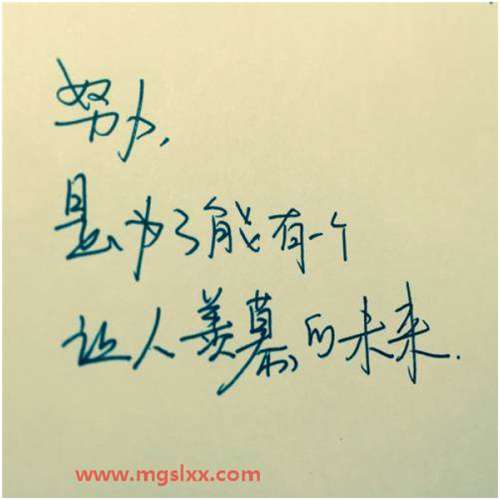 努力，
是为了能有一个
让人羡慕的未来.
www.mgslxx.com